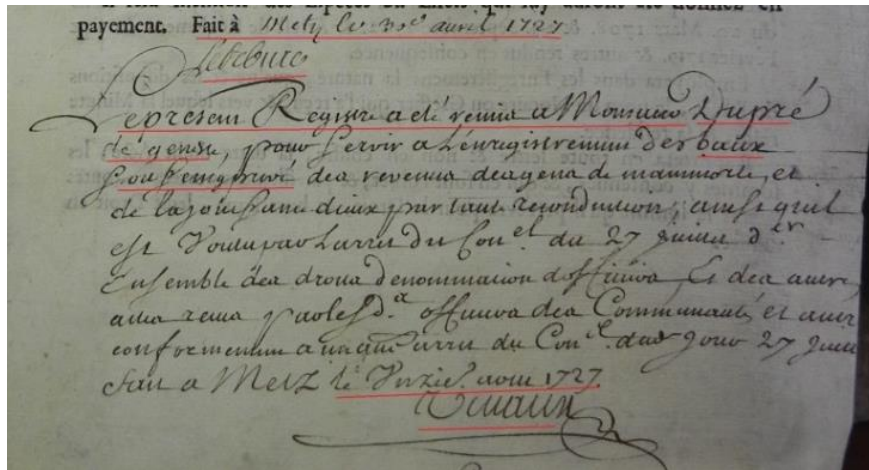 payement. Fait à Metz le 30e auril 1727
Lefebure
Le present Registre a eté remis a Monsieur Dupré
de geneste, pour servir a L'enregistrement des baux
sous seing privé des revenus des gens de mainmorte, et
de la jouissance d'iceux par taute reconduction, ainsi qu'il
est Voulu par L'arrest du Conel du 27 der
Ensemble des droits de nomination d'officiers, Et des autres
actes remis par les d. officiers des Communautés et autres
conformement a un autre arrest du Conel dud jour 27
Fait a Metz le Unzie aout 1727.